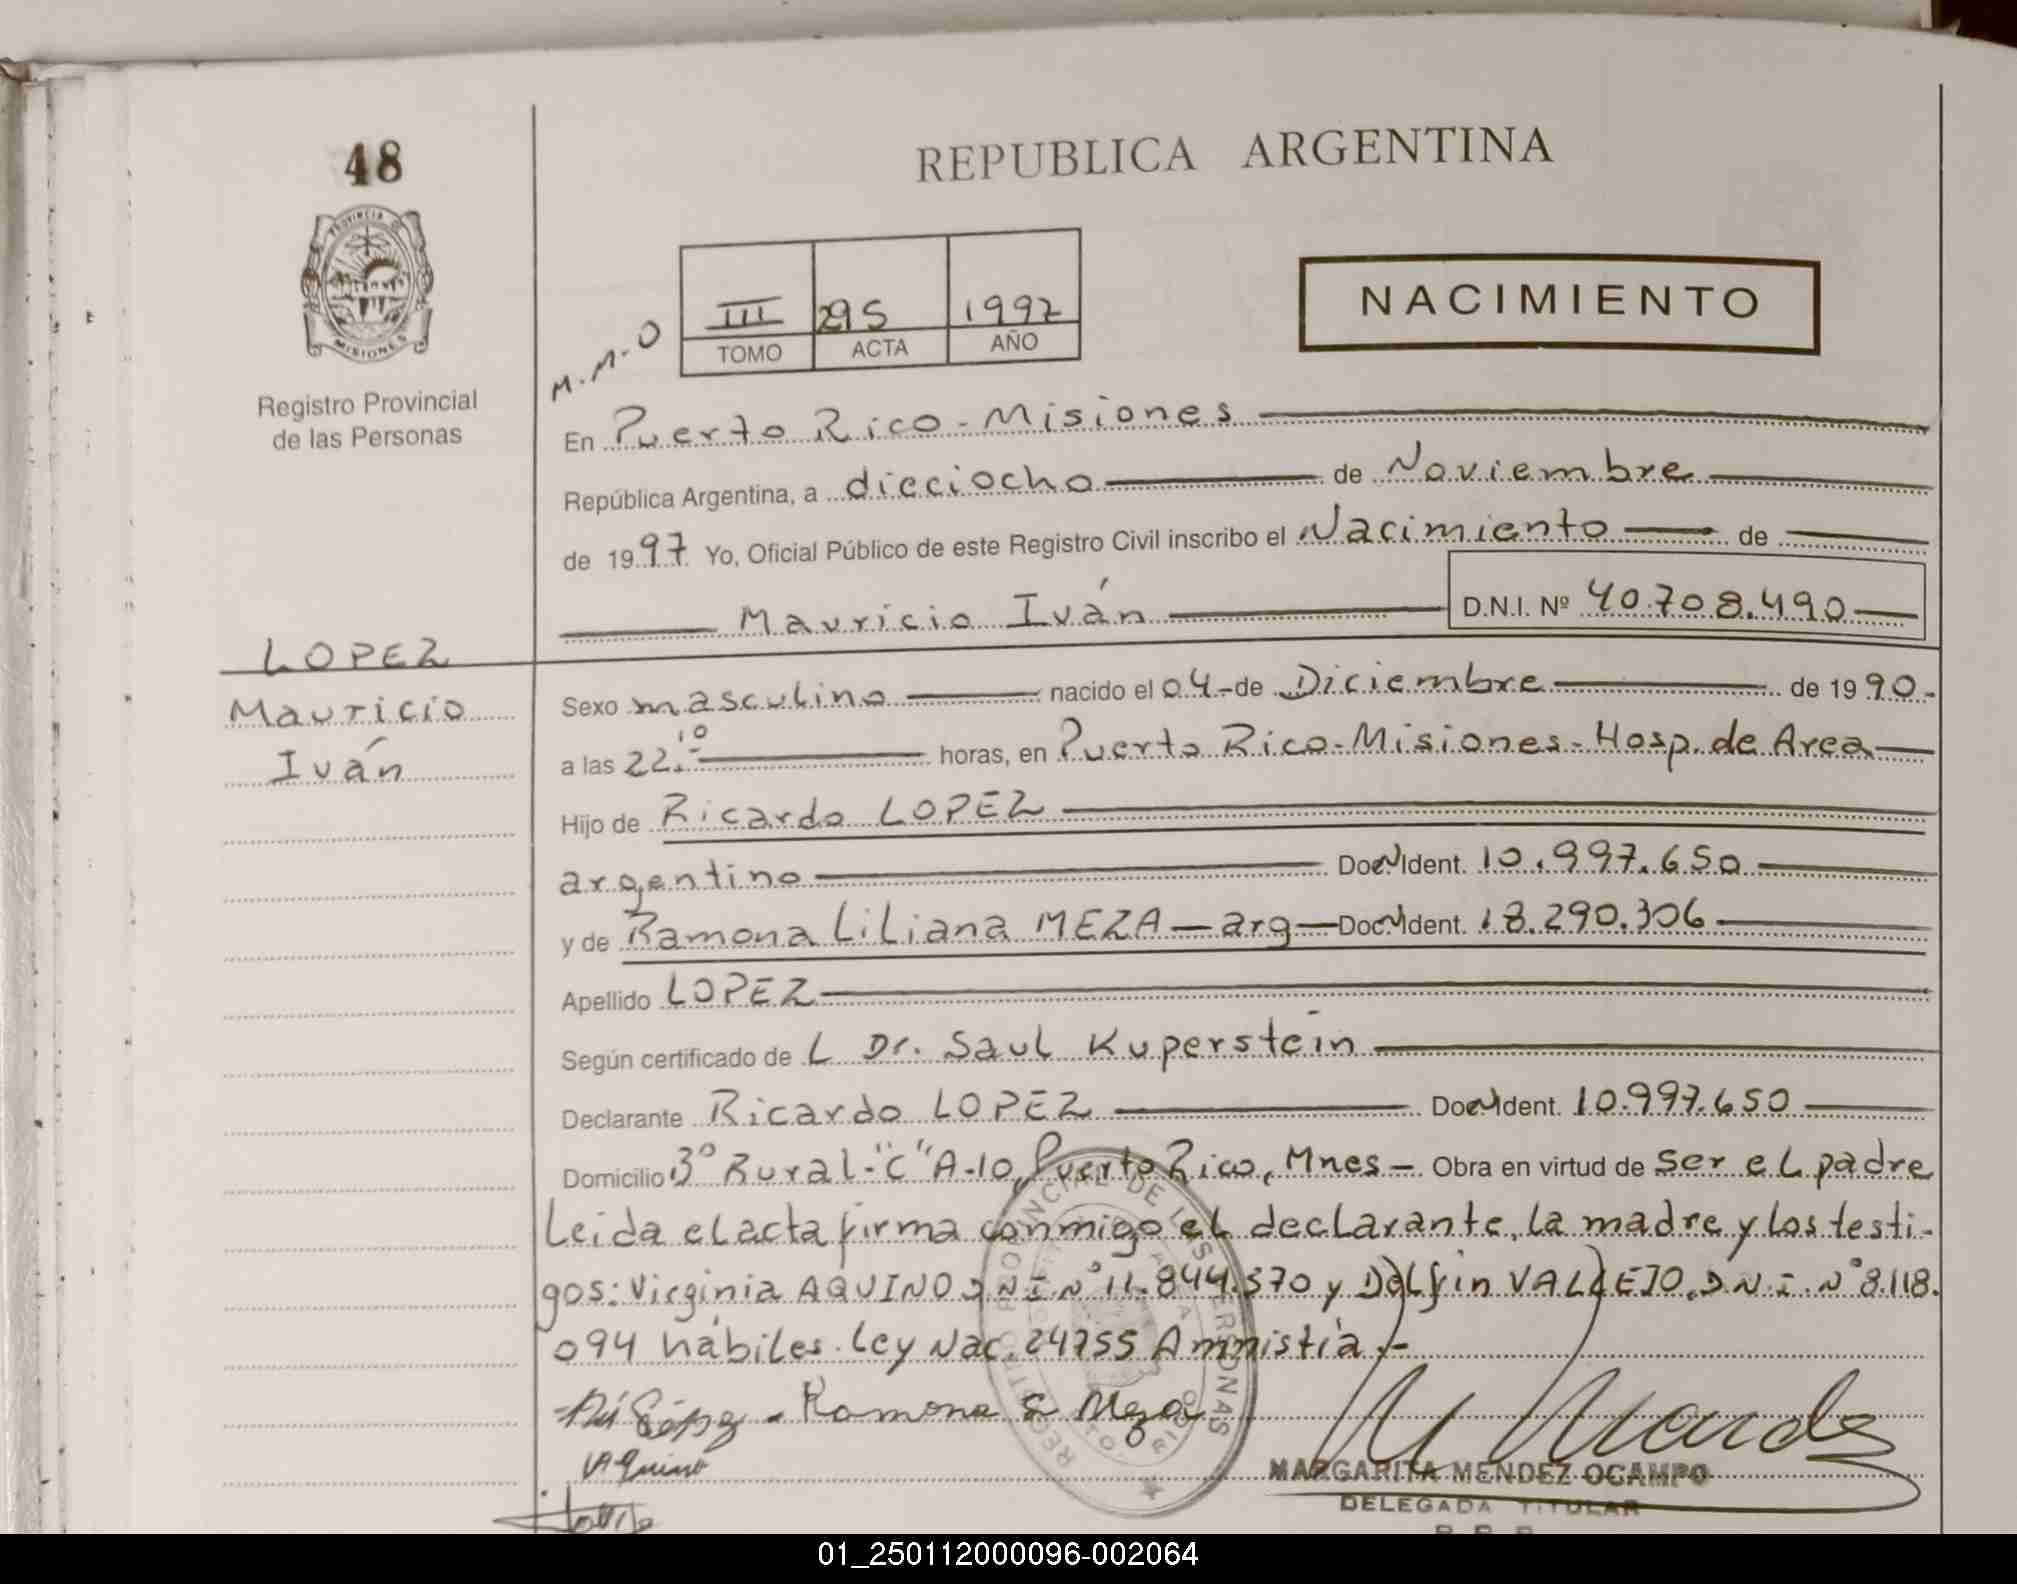 48
REPUBLICA ARGENTINA
PROVINCIA DE
MISIONES
NACIMIENTO
III 295 1997
TOMO ACTA AÑO
M.M.O
Registro Provincial
de las Personas
En Puerto Rico - Misiones
República Argentina, a dieciocho de Noviembre
de 1997 Yo, Oficial Público de este Registro Civil inscribo el Nacimiento de
Mauricio Iván D.N.I. Nº 40.708.490
LOPEZ
Mauricio
Iván
Sexo masculino nacido el 04 - de Diciembre de 1990.
a las 22:10 horas, en Puerto Rico - Misiones - Hosp. de Area
Hijo de Ricardo LOPEZ
argentino Doc. Ident. 10.997.650
y de Ramona Liliana MEZA - arg - Doc. Ident. 18.290.306
Apellido LOPEZ
Según certificado de L Dr. Saul Kuperstein
Declarante Ricardo LOPEZ Doc. Ident. 10.997.650
Domicilio 3° Rural - "C" A-10, Puerto Rico, Mnes - Obra en virtud de ser el padre
Leida el acta firma conmigo el declarante, la madre y los testi-
gos: Virginia AQUINO D.N.I. N° 11.844.370 y Delfin VALLEJO, D.N.I. N° 8.118.
094 hábiles. Ley Nac. 24755 Amnistía.-
Ramona L Meza
VAquino
REGISTRO PROVINCIAL DE LAS PERSONAS
PUERTO RICO
MARGARITA MENDEZ OCAMPO
DELEGADA TITULAR
01_250112000096-002064